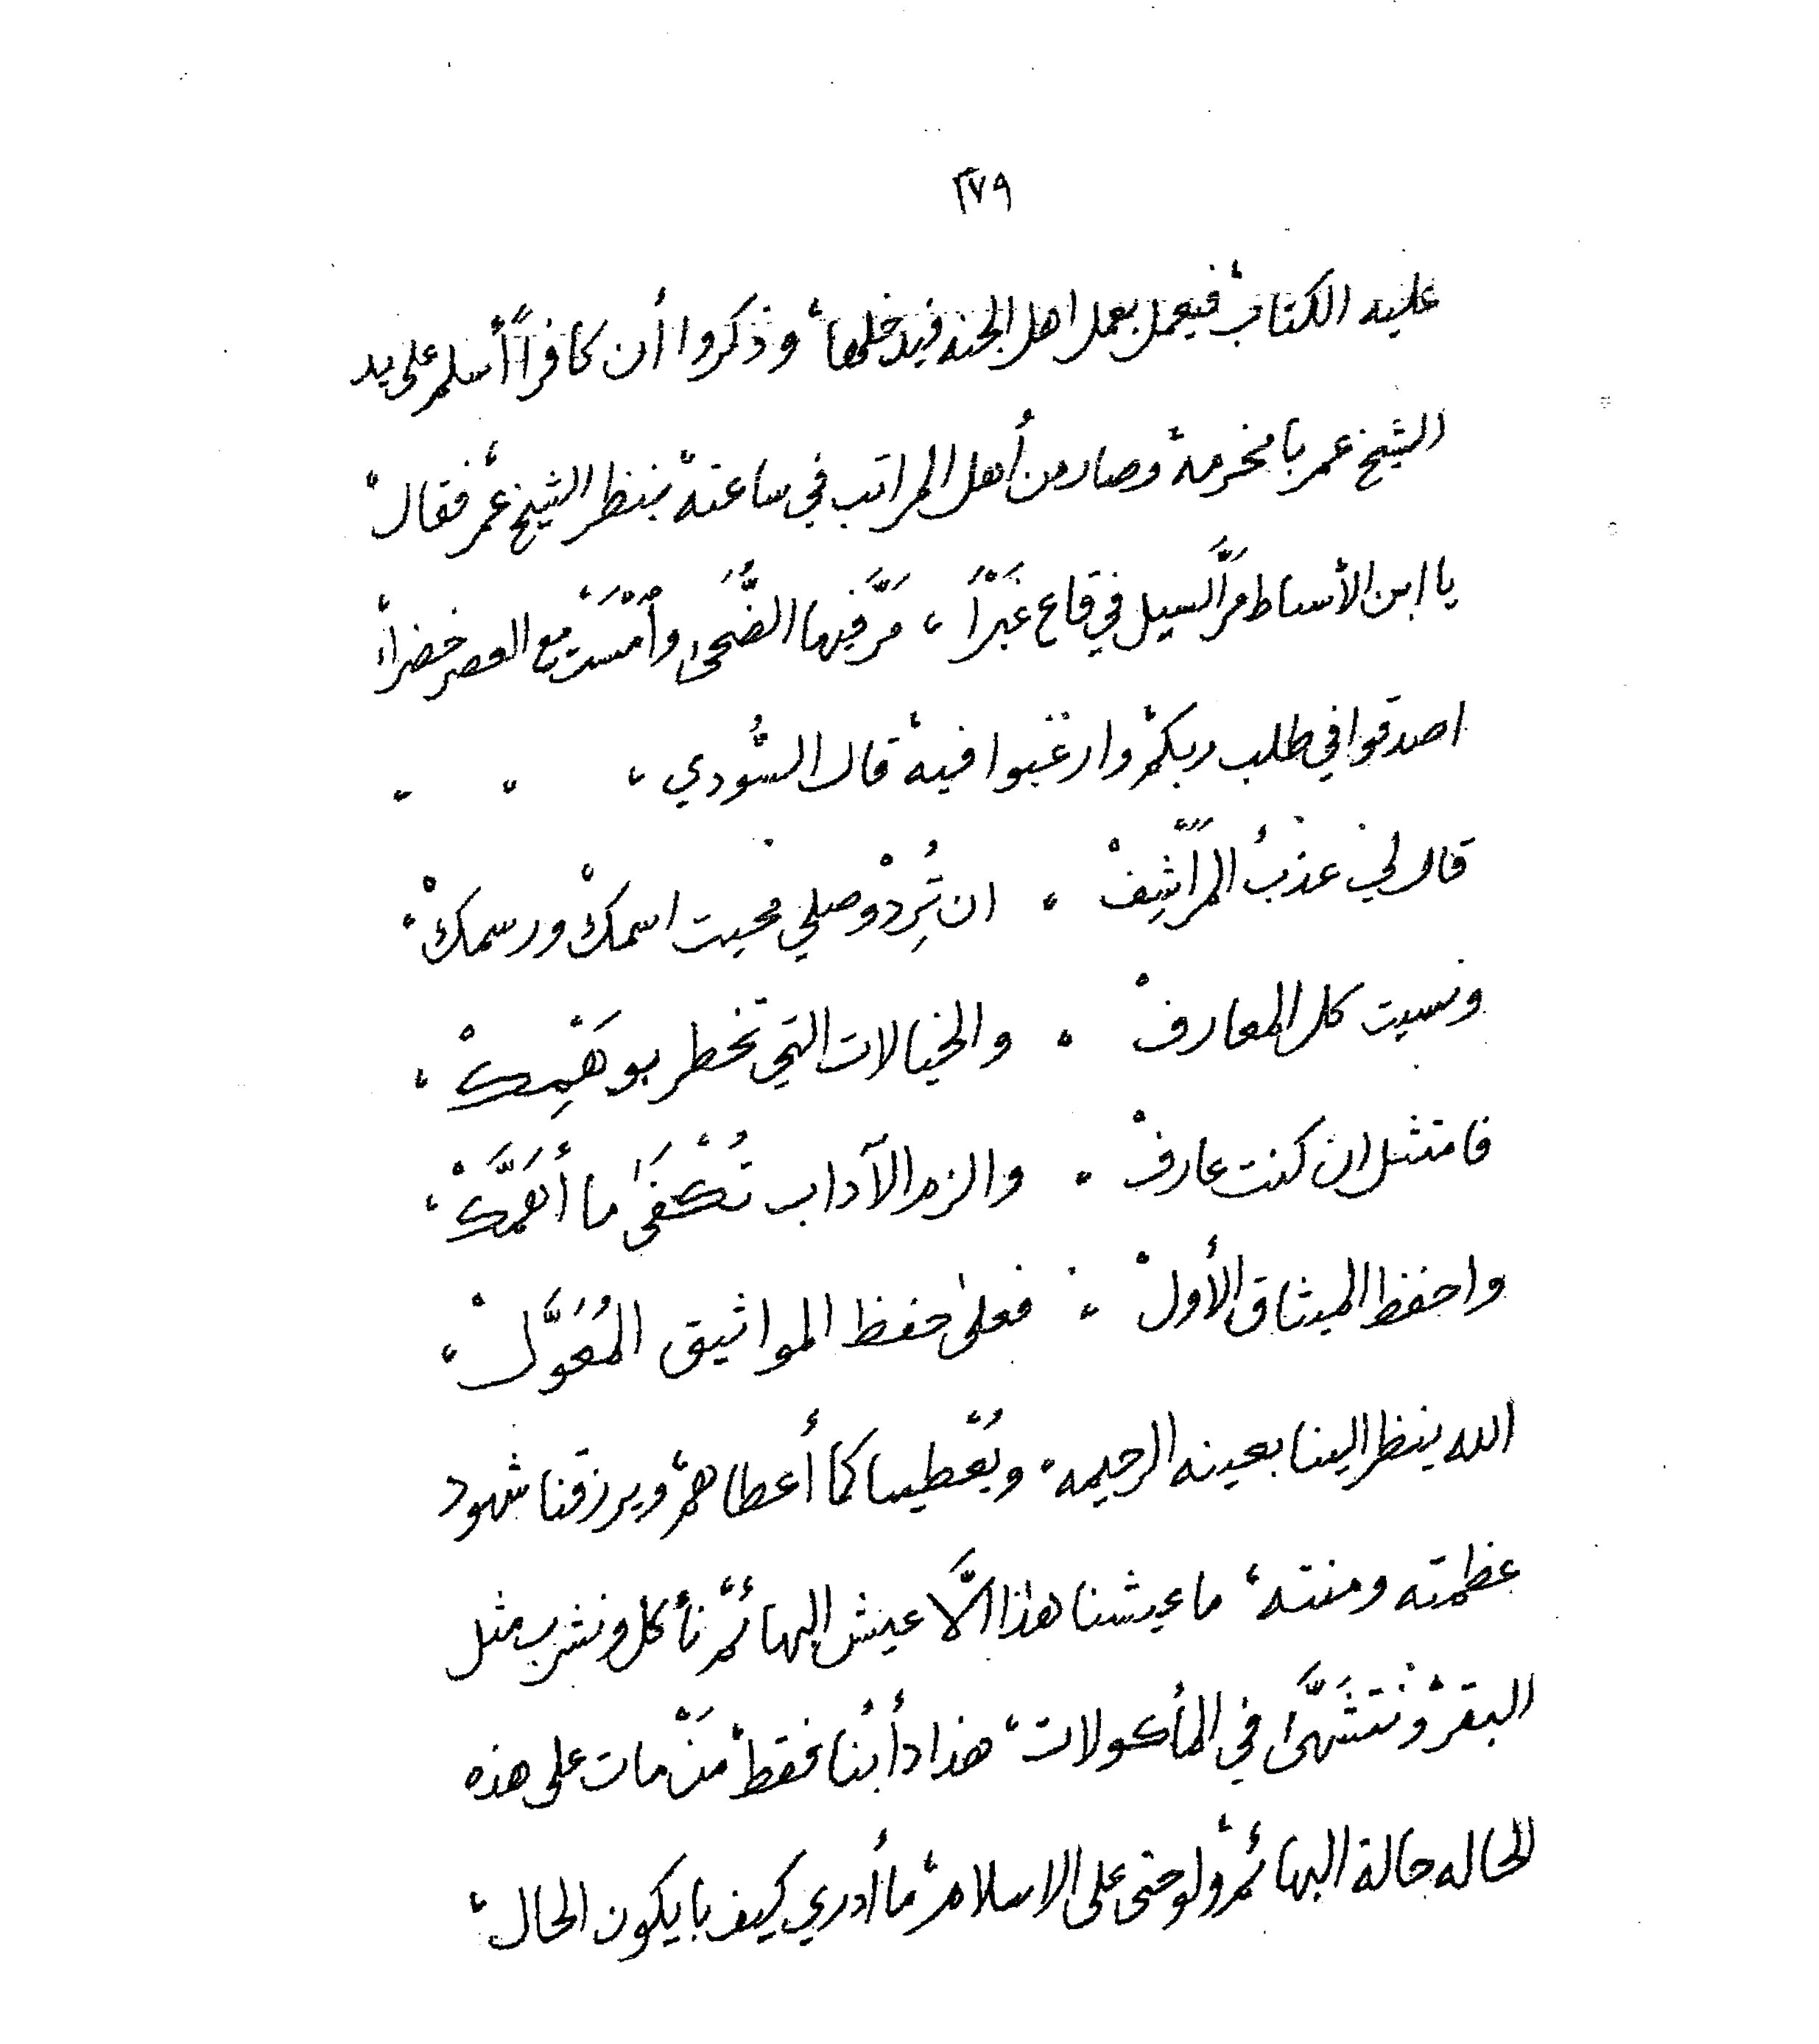 ٢٧٩
عليه الكتاب، فيعمل بعمل اهل الجنه فيدخلها، وذكروا أن كافراً أسلم على يد
الشيخ عمر بامخرمة، وصار من أهل المراتب في ساعته بنظر الشيخ عمر، فقال
يا ابن الأسباط مَرَّ السيل في قاع غَبْرَا، مَرَّ فيها الضُّحَى وأمْسَتْ مع العصر خضراء،
اصدقوا في طلب ربكم، وارغبوا فيه، قال السُّودي،
قال لي عذبُ المراشِفْ، ان تُرِدْ وصلي محيت اسمكْ ورسمكْ،
ونسيت كل المعارفْ، والخيالات التي تخطر بوَهْمِكْ،
فامتثل ان كنت عارفْ، والزم الآداب تُكْفَى ما أهَمَّكْ،
واحفظ الميثاق الأولْ، فعلى حفظ المواثيق المُعَوَّلْ،
الله ينظر الينا بعينه الرحيمه، ويُعْطينا كما أعطاهم، ويرزقنا شهود
عظمته ومنته، ما عيشنا هذا الَّا عيش البهائم، نأكل ونشرب مثل
البقر، ونَتَشَهَّى في المأكولات، هذا دأبُنا فقط، مَنْ مات على هذه
الحاله حالة البهائم، ولو حتى على الاسلام، ما أدري كيف بايكون الحال،